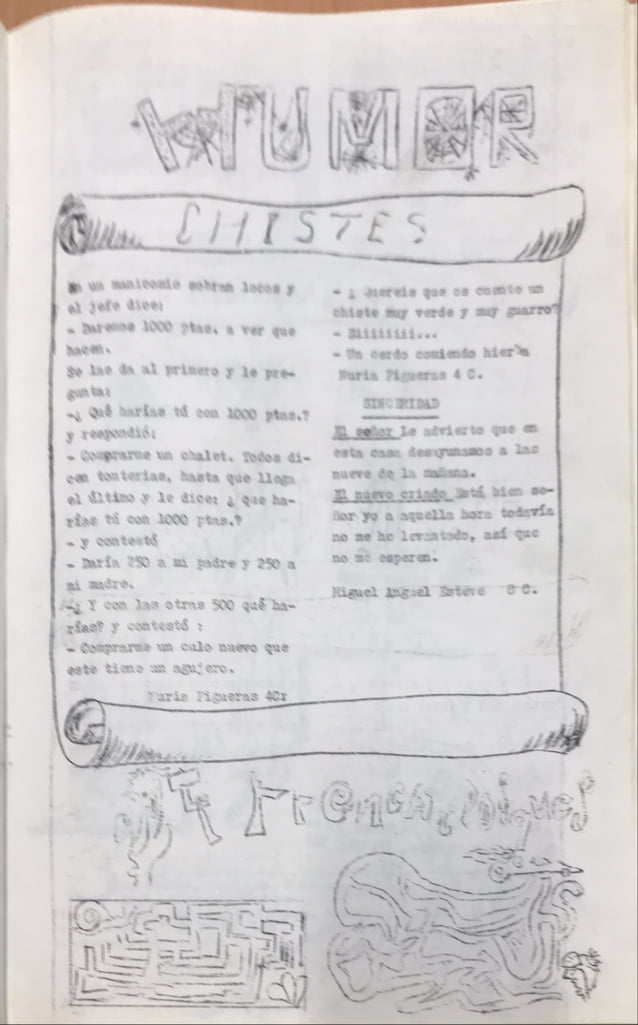 HUMOR
CHISTES
En un manicomio sobran locos y
el jefe dice:
- Daremos 1000 ptas. a ver que
hacen.
Se las da al primero y le pre-
gunta:
-¿ Qué harías tú con 1000 ptas.?
y respondió:
- Comprarme un chalet. Todos di-
cen tonterías, hasta que llega
el último y le dice: ¿ que ha-
rías tú con 1000 ptas.?
- y contestó
- Daría 250 a mi padre y 250 a
mi madre.
-¿ Y con las otras 500 qué ha-
rías? y contestó :
- Comprarme un culo nuevo que
este tiene un agujero.
Nuria Figueras 4C
- ¿ Quereis que os cuente un
chiste muy verde y muy guarro?
- Siiiiiii...
- Un cerdo comiendo hierba
Nuria Figueras 4 C.
SINCERIDAD
El señor Le advierto que en
esta casa desayunamos a las
nueve de la mañana.
El nuevo criado Está bien se-
ñor yo a aquella hora todavía
no me he levantado, así que
no me esperen.
Miguel Anguel Esteve 8 C.